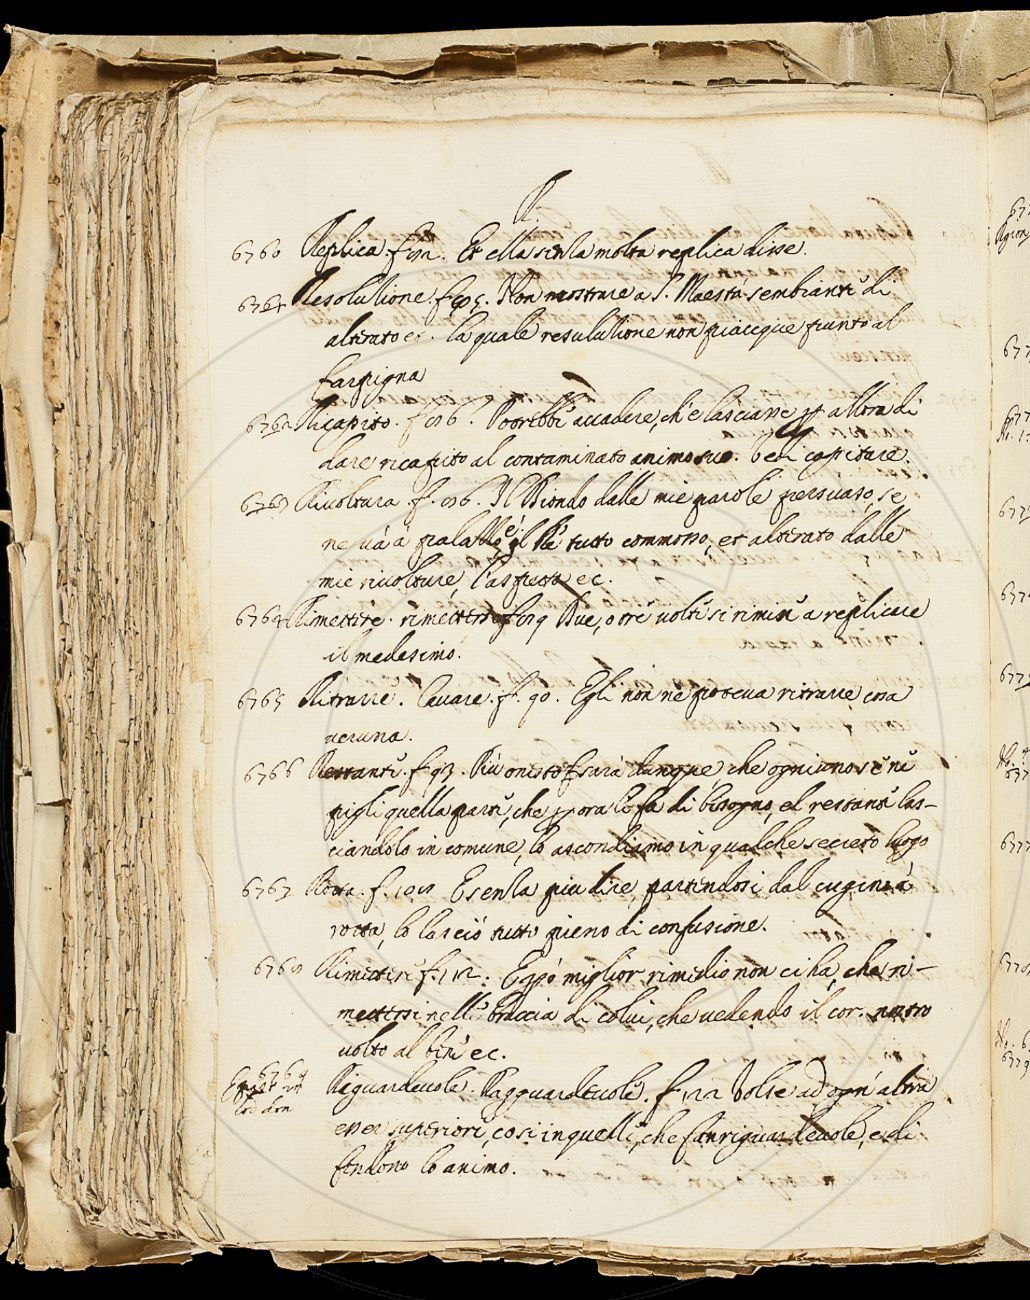 R.
6760 Replica. f. Et ella senza molta replica disse.
6761 Resoluzione. f. Non mostrare a S. Maestà sembianti di
altirato ec. la quale resuluzione non piacque punto al
farpigna
6762 Ricapito. f. 86. Potrebbe accadere, che lasciasse per allora di
dare ricapito al contaminato animo suo. Vedi capitare.
6763 Rivoltura f. 86. Il Biondo dalle mie parole persuaso, se
ne và à palazzo, e il Rè tutto commosso, et altirato dalle
mie rivolture, l'aspetta ec.
6764 Rimettere. rimettersi f. 89 Due, o tre volte si rimise a replicare
il medesimo.
6765 Ritrarre. Cavare. f. 90. Egli non ne poteva ritrarre cosa
veruna.
6766 Restante. f. 93. Più onesto sarà dunque che ogniuno se ne
pigli quella parte, che per ora lo fa di bisogno, el restante las-
ciandolo in comune, lo ascondiamo in qualche secreto luogo
6767 Rotta. f. E senza piu dire partendosi dal cugino à
rotta, lo lasciò tutto pieno di confusione.
6768 Rimettere f. 112. E però miglior rimedio non ci ha, che ri-
mettersi nelle braccia di colui, che vedendo il cor. nostro
volto al bene ec.
6769 Riguardevole. Ragguardevole. f. 122 Volse ad ogn' altra
esser superiori, cosi in quelli, che fan riguardevole, e di
fendono lo animo.